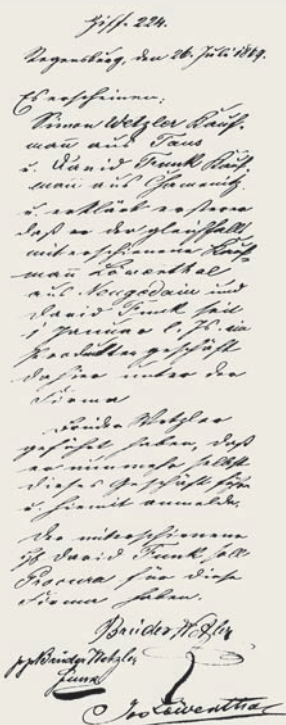 Ziff. 224.
Regensburg, den 26. Juli 1869.
Es erscheinen:
Simon Wetzler Kauf-
mann aus Taus
u. David Funk Kauf-
mann aus
u. erklärt ersterer
daß er der gleichfalls
miterschienene Kauf-
mann Löwenthal
aus Neugedein und
David Funk seit
1 Januar l. Js. ein
Produkten geschäft
dahier unter der
Firma
Brüder Wetzler
geführt haben, daß
er nunmehr selbst
dieses Geschäft führe
u. hiemit anmelde.
Der miterschienene
David Funk soll
Procura für diese
Firma haben.
Brüder Wetzler
pp Brüder Wetzler
Funk
Jos Löwenthal